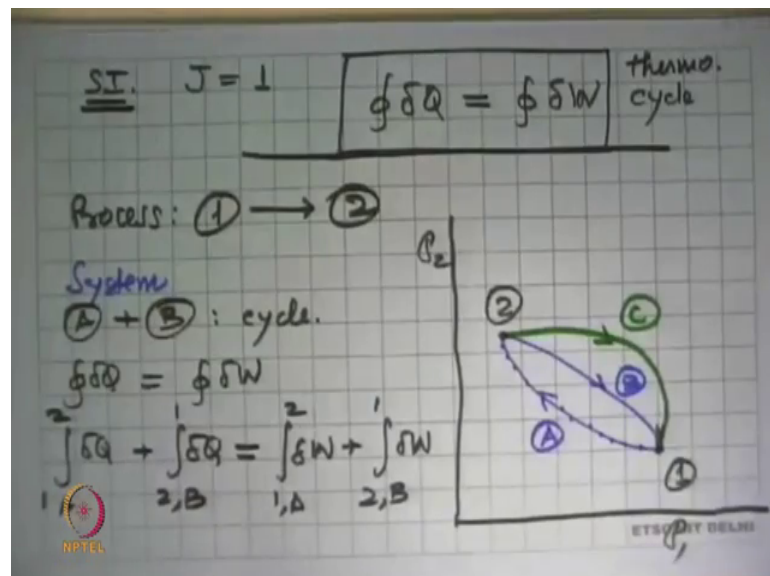 SI. J = 1 ∮ δQ = ∮ δW thermo.
cycle
Process: ① ⟶ ②
System
Ⓐ + Ⓑ : cycle.
∮δQ = ∮δW
∫ δQ + ∫ δQ = ∫ δW + ∫ δW
2 1 2 1
1, 2,B 1,A 2,B
P₂
②
C
B
A
①
P₁
NPTEL
ETSC, IIT DELHI